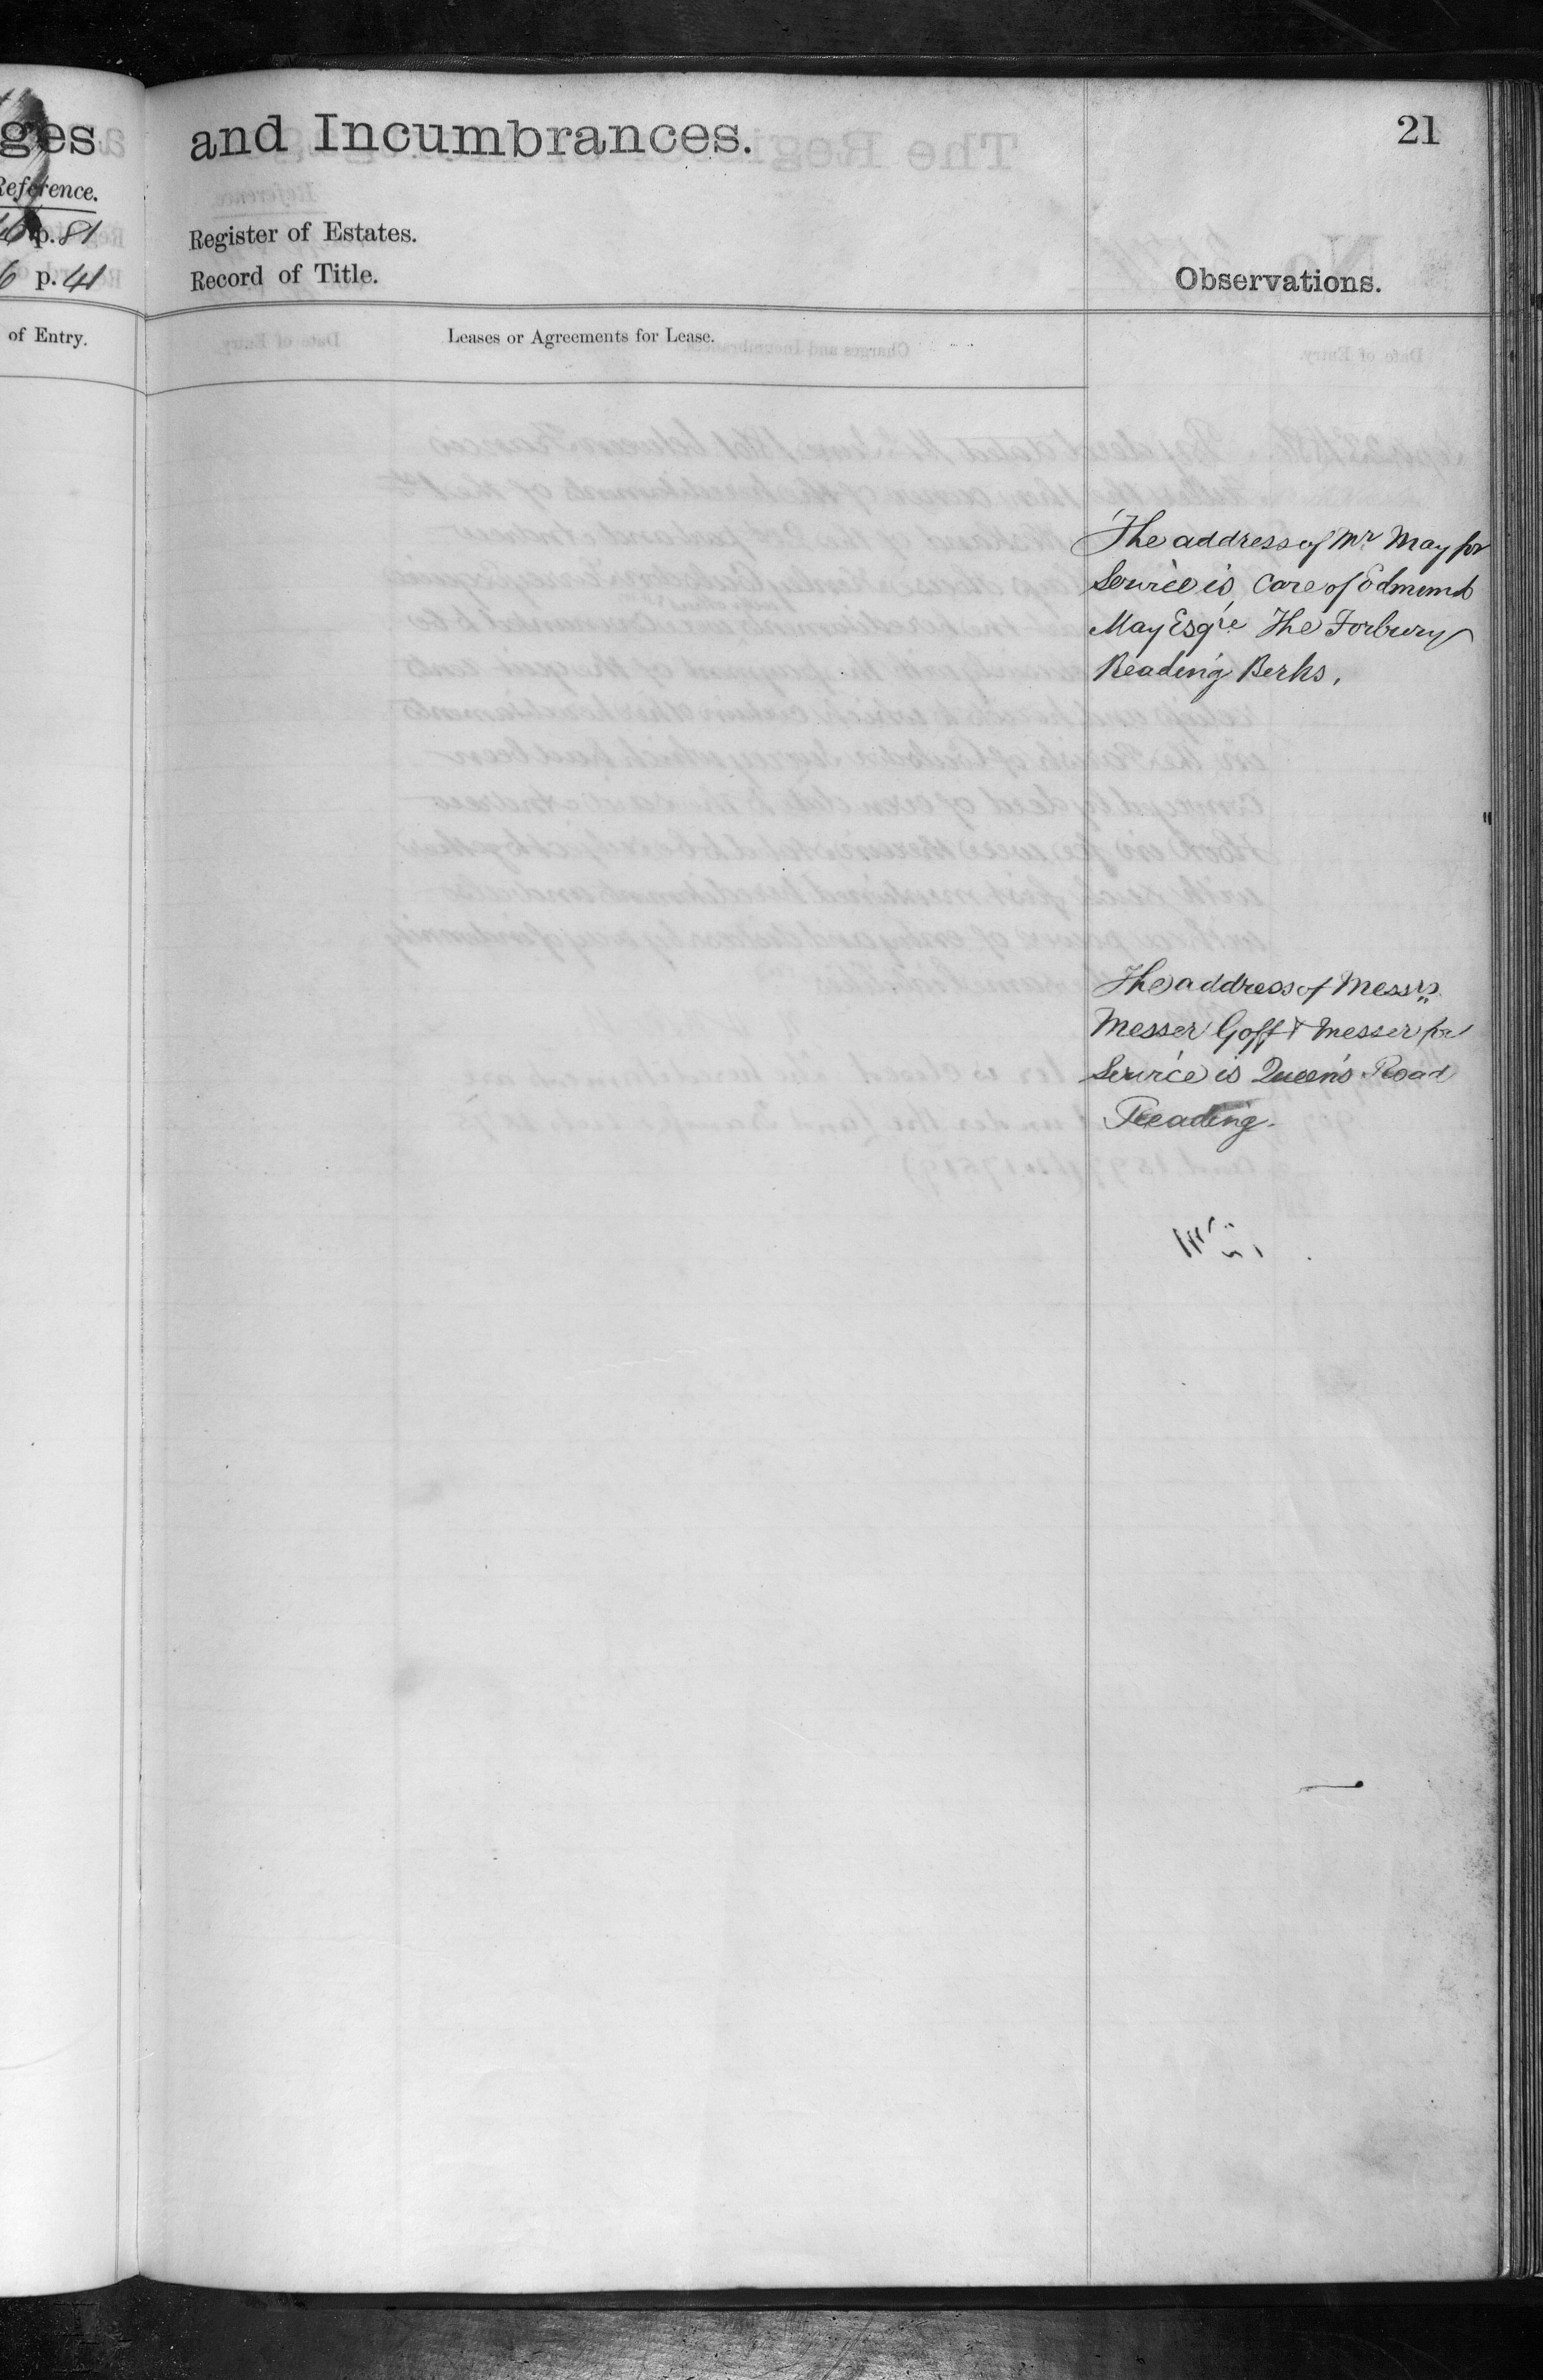 ges
Reference.
p. 81
6 p. 41
of Entry.
and Incumbrances.
21
Register of Estates.
Record of Title.
Observations.
Leases or Agreements for Lease.
The address of Mr May for
Service is Care of Edmund
May Esqre The Forbury
Reading Berks.
The address of Messrs
Messer Goff & Messer for
Service is Queen's Road
Reading.